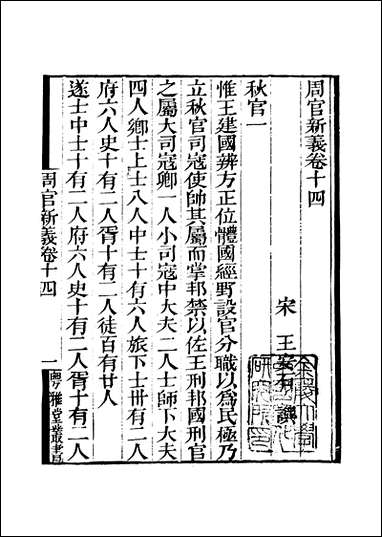 周官新義卷十四
宋 王安石 撰
秋官一
惟王建國辨方正位體國經野設官分職以爲民極乃
立秋官司寇使帥其屬而掌邦禁以佐王刑邦國刑官
之屬大司寇卿一人小司寇中大夫二人士師下大夫
四人鄉士上士八人中士十有六人旅下士卅有二人
府六人史十有二人胥十有二人徒百有廿人
遂士中士十有二人府六人史十有二人胥十有二人
周官新義卷十四
一
粵雅堂叢書